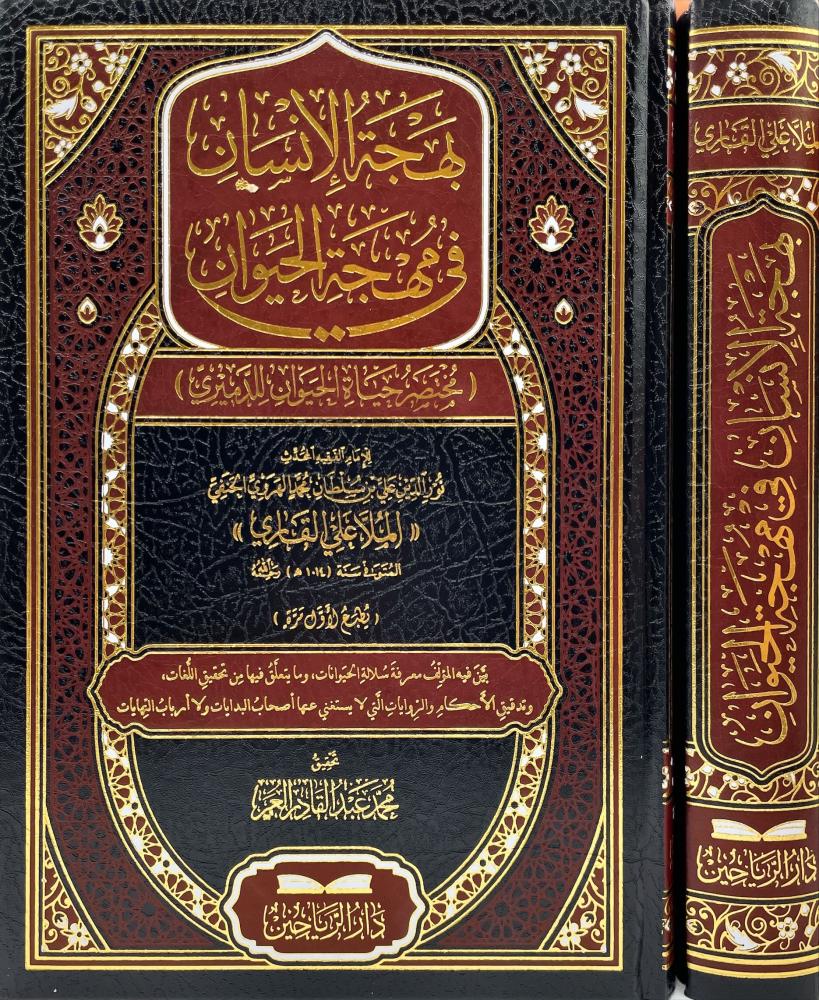 بَهْجَةُ الإِنْسَانِ
فِي مُهْجَةِ الحَيَوَانِ
( مُخْتَصَرُ حَيَاةِ الحَيَوَانِ لِلدَّمِيْرِيِّ )
للإمام الفقيه المحدّث
نور الدين علي بن سلطان محمد الهروي الحنفي
« المُلَّا عَلِي القَارِي »
المتوفى سنة (١٠١٤ هـ) رحمه الله
( يُطبَعُ لأوَّلِ مَرَّةٍ )
بيَّن فيه المؤلِّفُ معرفةَ سُلالةِ الحيوانات، وما يتعلَّقُ فيها مِن تحقيقِ اللُّغات،
وتدقيقِ الأحكامِ والرِّواياتِ الَّتي لا يستغني عنها أصحابُ البدايات ولا أربابُ النِّهايات
تحقيق
محمد عبد القادر العمر
دَارُ الرَّيَاحِيْن
المُلَّا عَلِي القَارِي
بَهْجَةُ الإِنْسَانِ فِي مُهْجَةِ الحَيَوَانِ
دَارُ الرَّيَاحِيْن